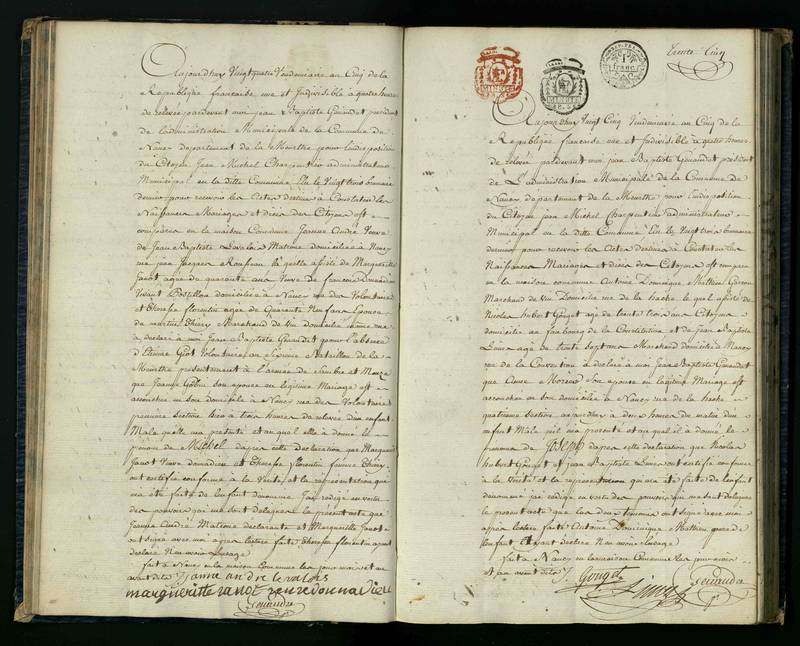 Aujourdhuy Vingt quatre Vendemiaire an Cinq de la
Republique française, une et Indivisible à quatre heures
de relevée pardevant moi jean Baptiste Genaudet president
de Ladministration Municipale de la Commune de
Nancy departement de la Meurthe pour l'indisposition
du Citoyen Jean Michel Charpentier administrateur
Municipal en la ditte Commune Elu le Vingt trois brumaire
dernier pour recevoir les Actes destinés à Constater les
Naissances Mariages et décès des Citoyens est
comparüe en la maison Commune Jeanne André Veuve
de Jean Baptiste Matrone domiciliée à Nancy
rue jean Jacques Rousseau la quelle assistée de Marguerite
Janot agée de quarante ans Veuve de françois
Vivant Postillon domiciliée à Nancy rue des Volontaires
et Therese florentin agée de Quarante Neuf ans Epouse
de martin Thiery Marchand de Vin domicilié même rue
à déclaré à moi Jean Baptiste Genaudet pour l'absence
d'Etienne Giot Volontaire au Septieme Bataillon de la
Meurthe presentement à l'armée de Sambre et Meuze
que Jeanne son épouse en légitime Mariage est
accouchée en son domicile à Nancy rue des Volontaires
premiere Section hier à trois heures de relevée d'un enfant
Male qu'elle ma présenté et au quel elle à donné le
prenom de Michel d'apres cette déclaration que Marguerite
Janot Veuve et Therese florentin femme Thiery
ont certifié conforme à la Verité, et la representation qui
m'a été faite de l'enfant dénommé J'ai redigé en vertu
des pouvoirs qui me sont delegués le présent acte que
Jeanne André Matrone declarante et Marguerite Janot
ont signé avec moi apres lecture faite Therese florentin ayant
declaré Ne savoir l'usage
fait à Nancy en la maison Commune les jour mois et an
avant dits Janne andre
margueritte
Trente Cinq
1 franc
Aujourdhuy Vingt Cinq Vendemiaire an Cinq de la
Republique francaise une et Indivisible à quatre heures
de relevée pardevant moi jean Baptiste Genaudet président
de L'administration Municipale de la Commune de
Nancy departement de la Meurthe pour l'indisposition
du Citoyen jean Michel Charpentier administrateur
Municipal en la ditte Commune Elu le Vingt trois brumaire
dernier pour recevoir les Actes destinés à Constater les
Naissances Mariages et décès des Citoyens est comparu
en la maison commune Antoine Dominique Mathieu
Marchand de Vin Domicilié rue de la hache le quel assisté de
Nicolas hubert Gouget agé de trente trois ans Citoyen
domicilié au faubourg de la Constitution et de Jean Baptiste
agé de trente Sept ans Marchand domicilié à Nancy
rue de la Convention à déclaré à moi Jean Baptiste Genaudet
que son épouse en légitime Mariage est
accouchée en son domicile à Nancy rue de la hache
quatrieme Section à deux heures du matin d'un
enfant Male qu'il ma présenté et au quel il a donné le
prenom de Joseph d'apres cette declaration que Nicolas
hubert Gouget et jean Baptiste ont certifié conforme
à la Verité et la representation qui m'a été faite de l'enfant
dénommé jai redigé en vertu des pouvoirs qui me sont delegués
le present acte que les deux temoins ont signé avec moi
apres lecture faite Antoine Dominique Mathieu pere de
l'enfant ayant declaré Ne savoir l'usage
fait à Nancy en la maison Commune les jour mois
et an avant dits J. Gouget